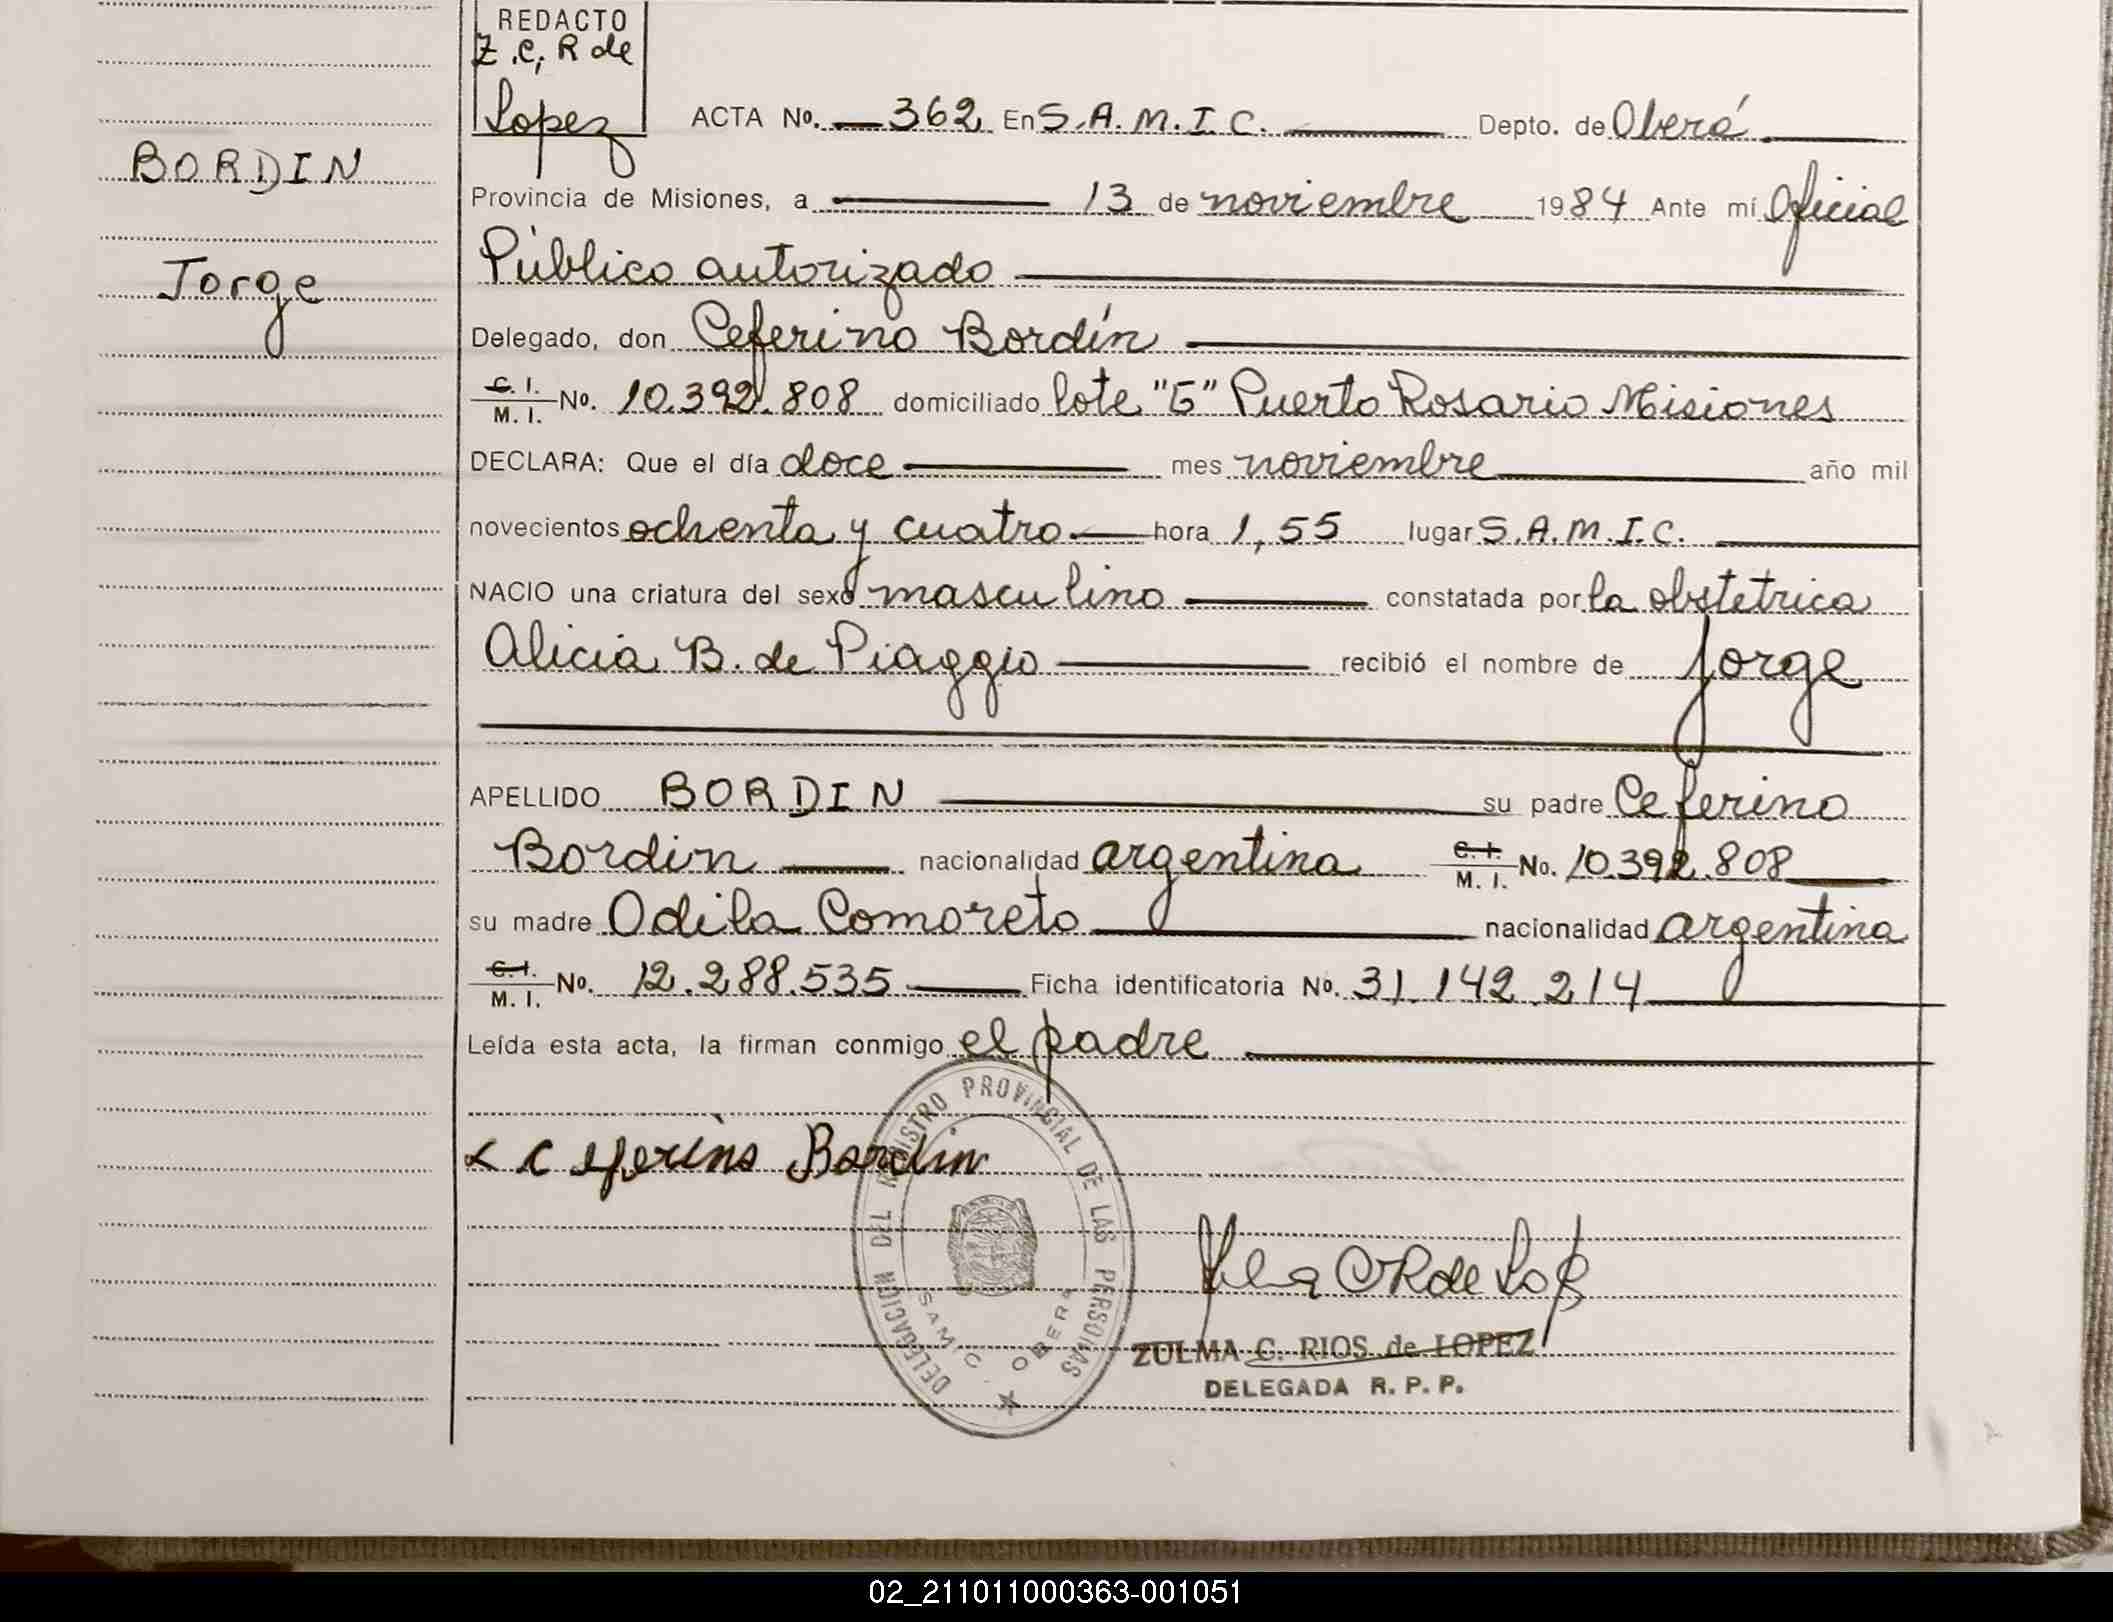 REDACTO
Z.C, R de
Lopez
ACTA No. 362 En S.A.M.I.C. Depto. de Oberá
BORDIN
Provincia de Misiones, a 13 de noviembre 1984 Ante mí Oficial
Público autorizado
Jorge
Delegado, don Ceferino Bordín
C. I.
M. I. No. 10.392.808 domiciliado lote "G" Puerto Rosario Misiones
DECLARA: Que el día doce mes noviembre año mil
novecientos ochenta y cuatro hora 1,55 lugar S.A.M.I.C.
NACIO una criatura del sexo masculino constatada por la obstetrica
Alicia B. de Piaggio recibió el nombre de Jorge
APELLIDO BORDIN su padre Ceferino
Bordin nacionalidad argentina C. I. M. I. No. 10.392.808
su madre Odila Comoreto nacionalidad argentina
C. I.
M. I. No. 12.288.535 Ficha identificatoria No. 31.142.214
Leída esta acta, la firman conmigo el padre
Ceferino Bordin
DELEGACION DEL REGISTRO PROVINCIAL DE LAS PERSONAS
SAMIC. OBERA
ZULMA C. RIOS de LOPEZ
DELEGADA R. P. P.
02_211011000363-001051